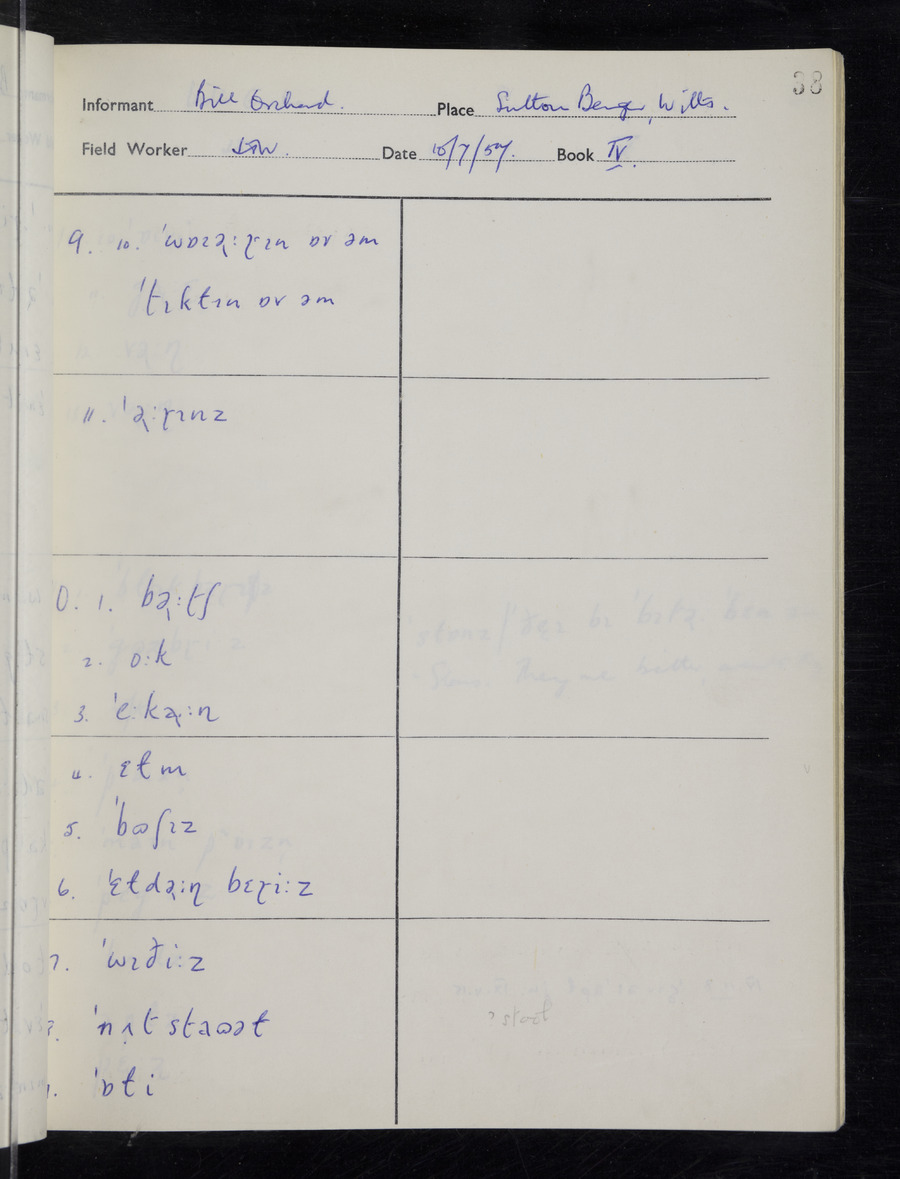 38
Informant Bill Orchard. Place Sutton Benger, Wilts.
Field Worker Date 10/7/57. Book IV.
9. 10. ˈwɒɪə˞:ɽɪn ɒv əm
ˈtɪktɪn ɒv əm
11. ˈə˞:ɽɪnz
0. 1. bə˞:tʃ
2. o:k
3. ˈe:kə˞:ɳ
4. ɛɫm
5. ˈbʊʃɪz
6. ˈɛɫdə˞:ɳ bɛɽi:z
7. ˈwɪði:z
ˈnʌt staʊət
ˈɒɫi
? stoət